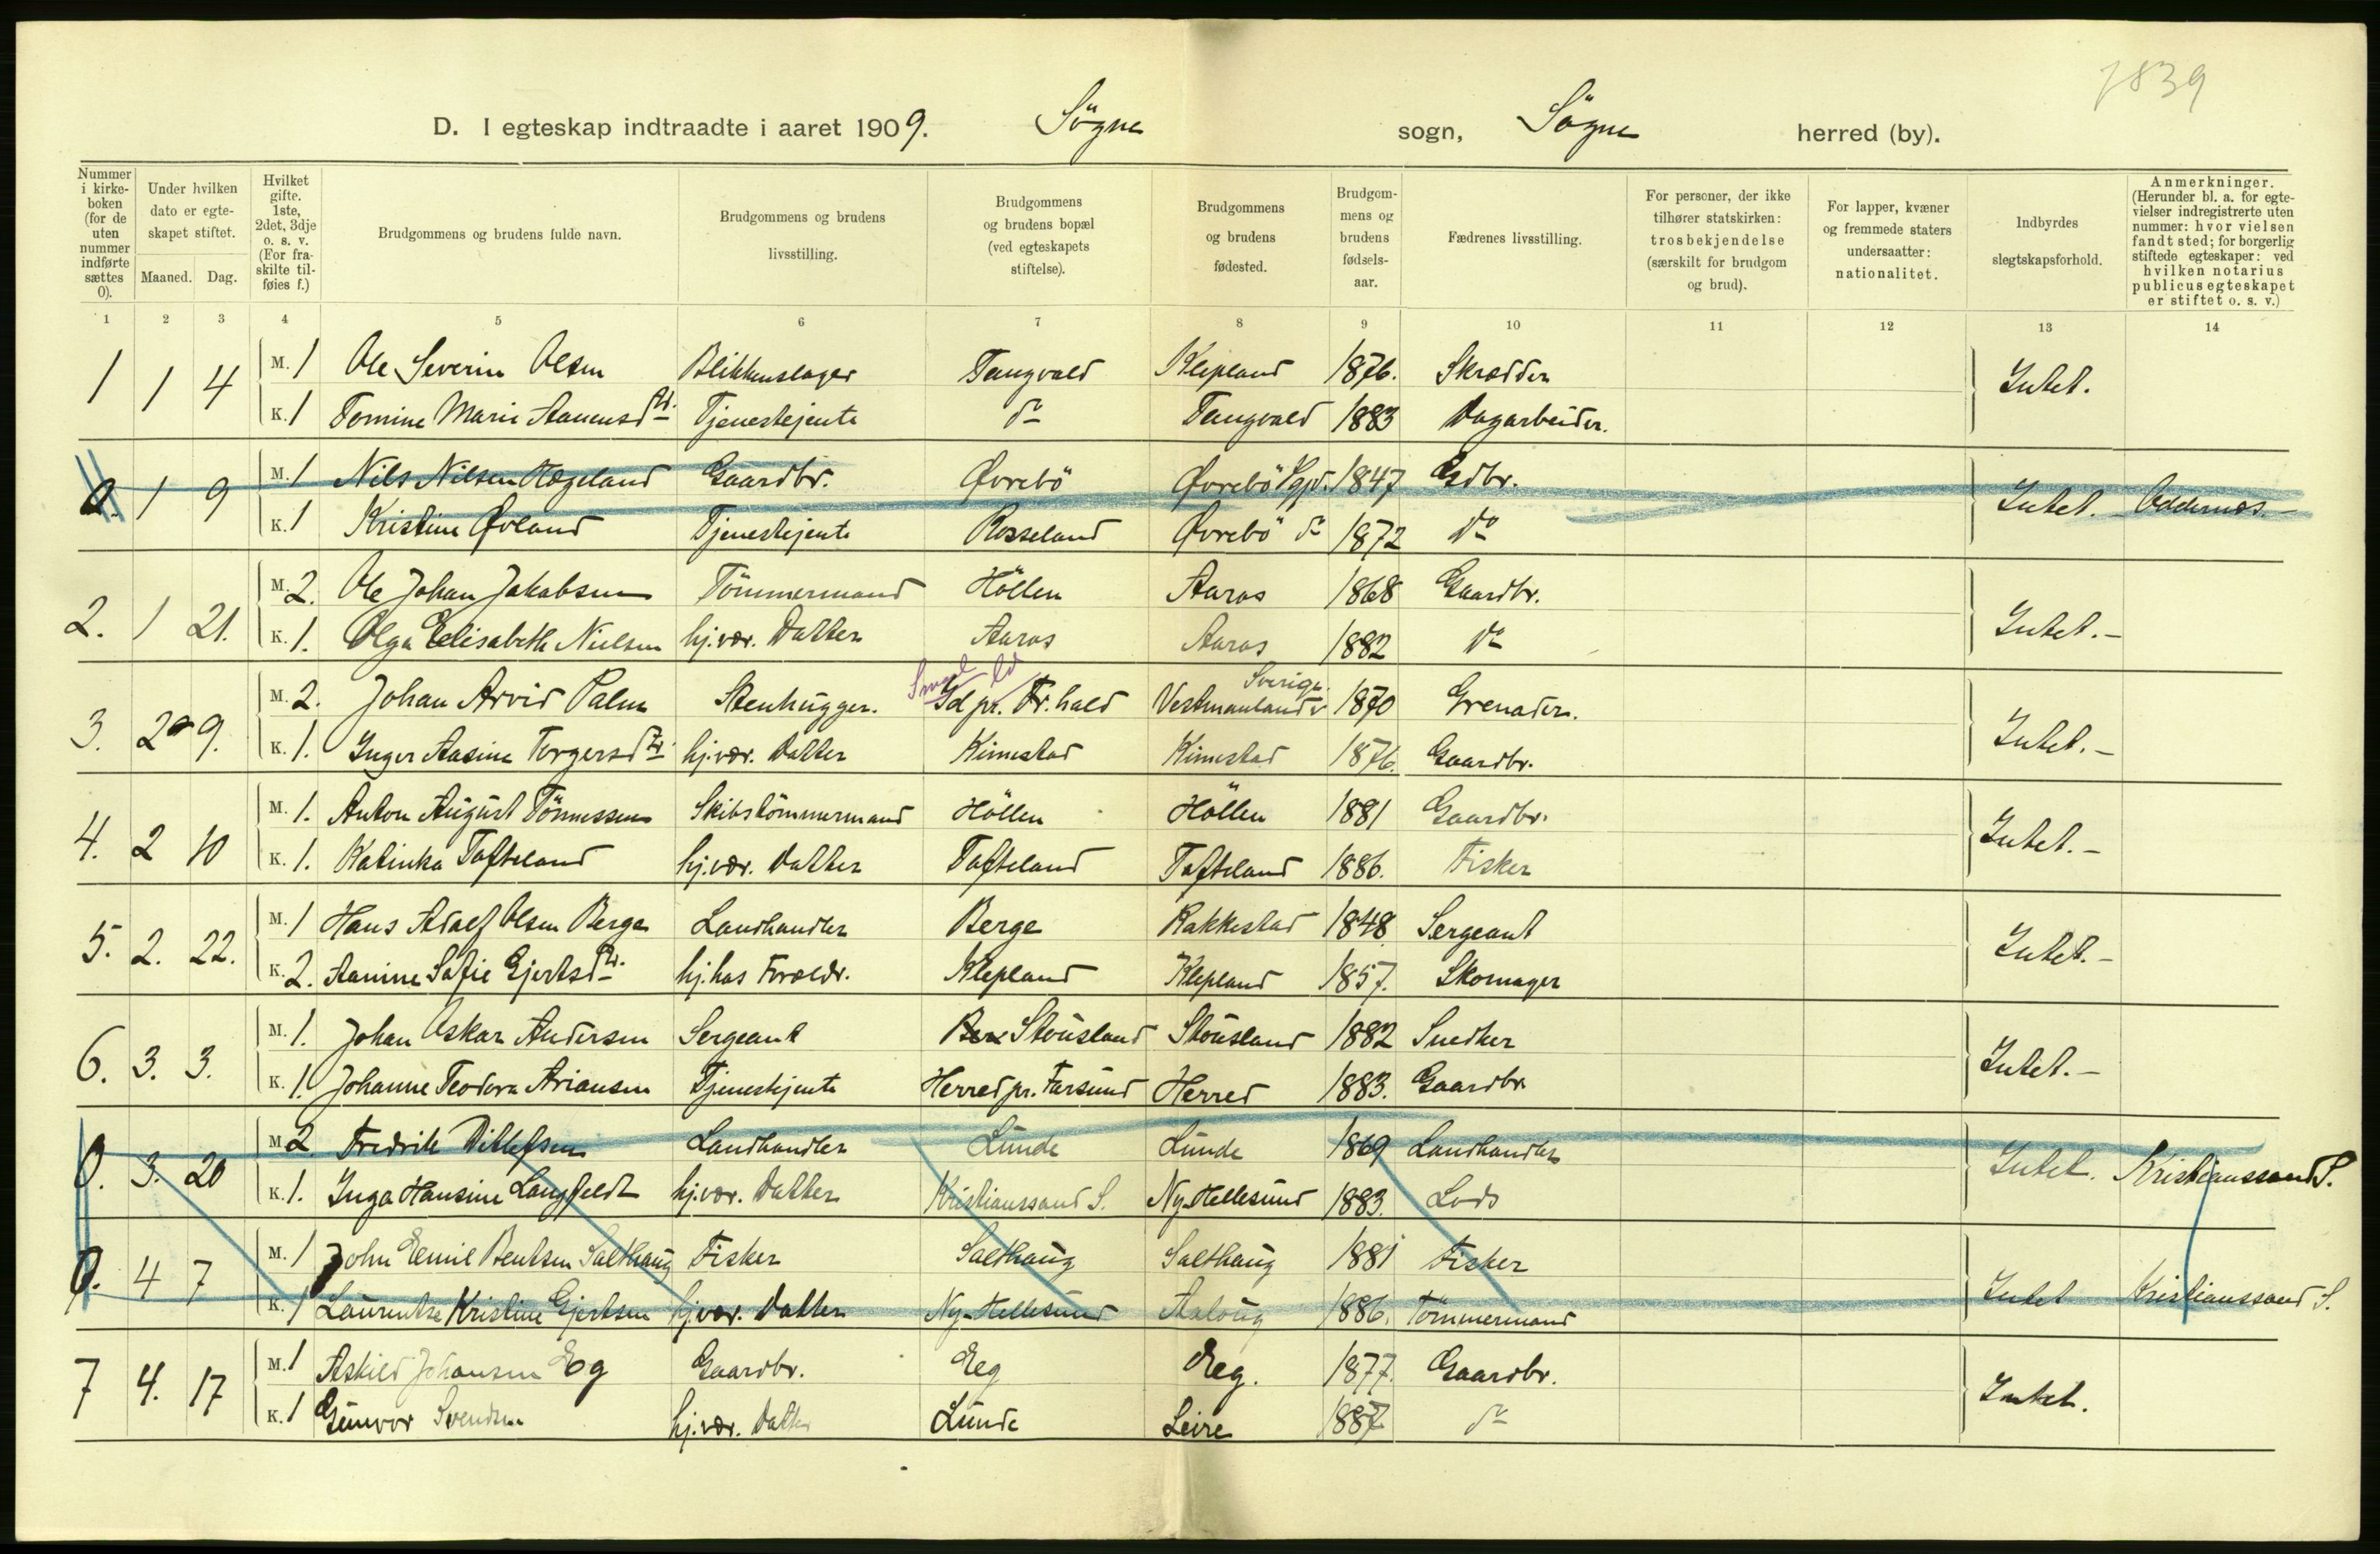 7839
D. I egteskap indtraadte i aaret 1909. Søgne sogn, Søgne herred (by).
Nummer i kirke-boken (for de uten nummer indførte sættes 0).
Under hvilken dato er egte-skapet stiftet.
Maaned. Dag.
Hvilket gifte. 1ste, 2det, 3dje o. s. v. (For fra-skilte til-føies f.)
Brudgommens og brudens fulde navn.
Brudgommens og brudens livsstilling.
Brudgommens og brudens bopæl (ved egteskapets stiftelse).
Brudgommens og brudens fødested.
Brudgom-mens og brudens fødsels-aar.
Fædrenes livsstilling.
For personer, der ikke tilhører statskirken: trosbekjendelse (særskilt for brudgom og brud).
For lapper, kvæner og fremmede staters undersaatter: nationalitet.
Indbyrdes slegtskapsforhold.
Anmerkninger. (Herunder bl. a. for egte-vielser indregistrerte uten nummer: hvor vielsen fandt sted; for borgerlig stiftede egteskaper: ved hvilken notarius publicus egteskapet er stiftet o. s. v.)
1 2 3 4 5 6 7 8 9 10 11 12 13 14
1 1 4 M. 1 Ole Severin Olsen Blikkenslager Tangvald Klepland 1876. Skrædder Intet.
K. 1 Tomine Marie Aanensdtr. Tjenestejente do Tangvald 1883 Dagarbeider.
0. 1 9 M. 1 Nils Nilsen Hægeland Gaardbr. Øvrebö Øvrebö Pgjd. 1847 Gdbr. Intet. Oddernes.
K. 1 Kristine Øvland Tjenestejente Rosseland Øvrebö do 1872 do
2. 1 21. M. 2. Ole Johan Jakobsen Tömmermand Höllen Aaros 1868 Gaardbr. Intet.
K. 1. Olga Elisabeth Nielsen hj.vær. Datter Aaros Aaros 1882 do
3. 2 9. M. 2. Johan Arvid Palm Stenhugger. Id pr. Fr.hald Vestmanland Sverige. 1870 Grenader. Intet.
K. 1. Inger Aasine Torgersdtr. hj.vær. Datter Kimestad Kimestad 1876. Gaardbr.
4. 2 10 M. 1. Anton August Tönnessen Skibstömmermand Höllen Höllen 1881 Gaardbr. Intet.
K. 1. Katinka Tofteland hj.vær. Datter Tofteland Tofteland 1886. Fisker
5. 2. 22. M. 1 Hans Adolf Olsen Berge Landhandler Berge Rakkestad 1848 Sergeant Intet.
K. 2. Aanine Sofie Gjertsdtr. hj. hos Foreldr. Klepland Klepland 1857. Skomager
6. 3. 3. M. 1. Johan Oskar Andersen Sergeant Stousland Stousland 1882 Snedker Intet.
K. 1. Johanne Teodora Ariansen Tjenestejente Herred pr. Farsund Herred 1883. Gaardbr
0. 3. 20 M. 2 Fredrik Ditlefsen Landhandler Lunde Lunde 1869 Landhandler Intet. Kristianssand S.
K. 1. Inga Hansine Langfeldt hj.vær. Datter Kristianssand S. Ny-Hellesund 1883. Lods
0. 4 7 M. 1 John Emil Bentsen Salthaug Fisker Salthaug Salthaug 1881 Fisker Intet Kristianssand S.
K. 1 Laurentse Kristine Gjertsen hj.vær. Datter Ny-Hellesund 1886. Tömmermand
7 4. 17 M. 1 Askild Johansen Eg Gaardbr. Eeg Eeg. 1877. Gaardbr. Intet.
K. 1 Gunvor Svendsen hj.vær. Datter Lunde Leire 1887 do